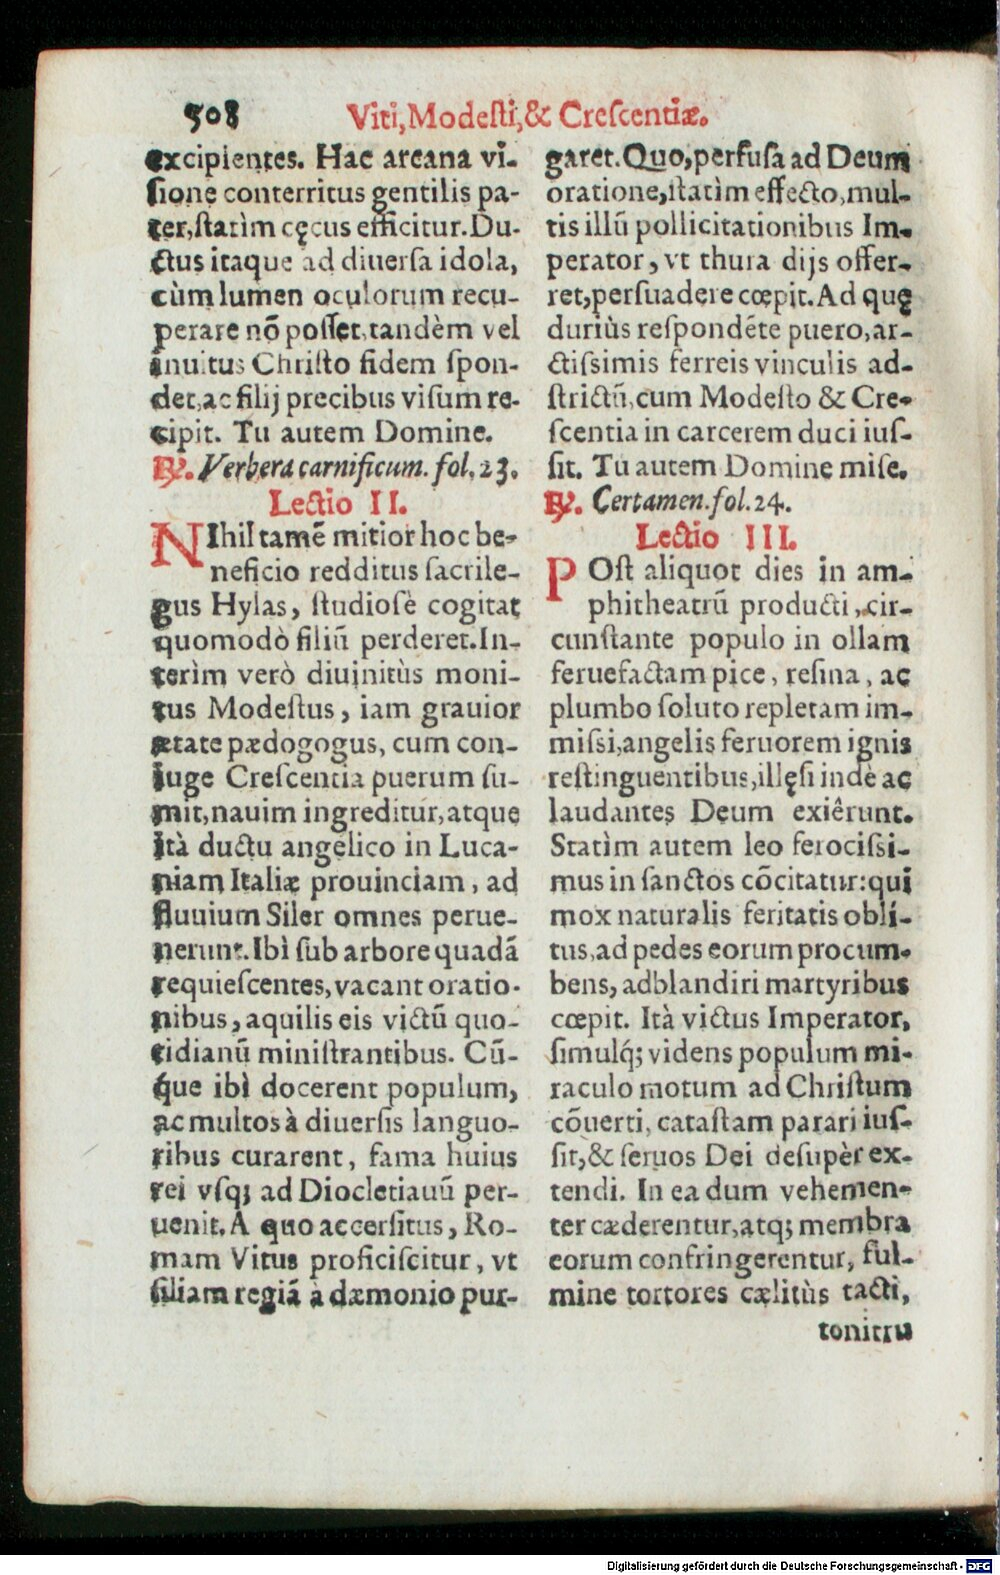 508 Viti, Modeſti, & Creſcentiæ.
excipientes. Hac arcana vi-
ſione conterritus gentilis pa-
ter, ſtatìm cęcus efficitur. Du-
ctus itaque ad diuerſa idola,
cùm lumen oculorum recu-
perare nõ poſſet, tandèm vel
inuitus Chriſto fidem ſpon-
det, ac filij precibus viſum re-
cipit. Tu autem Domine.
℟. Verbera carnificum. fol. 23.
Lectio II.
NIhil tamẽ mitior hoc be-
neficio redditus ſacrile-
gus Hylas, ſtudioſè cogitat
quomodò filiũ perderet. In-
terìm verò diuinitùs moni-
tus Modeſtus, iam grauior
ætate pædogogus, cum con-
iuge Creſcentia puerum ſu-
mit, nauim ingreditur, atque
ità ductu angelico in Luca-
niam Italiæ prouinciam, ad
fluuium Siler omnes perue-
nerunt. Ibì ſub arbore quadã
requieſcentes, vacant oratio-
nibus, aquilis eis victũ quo-
tidianũ miniſtrantibus. Cũ-
que ibì docerent populum,
ac multos à diuerſis languo-
ribus curarent, fama huius
rei vſq; ad Diocletiauũ per-
uenit. A quo accerſitus, Ro-
mam Vitus proficiſcitur, vt
filiam regiã à dæmonio pur-
garet. Quo, perfuſa ad Deum
oratione, ſtatìm effecto, mul-
tis illũ pollicitationibus Im-
perator, vt thura dijs offer-
ret, perſuadere cœpit. Ad quę
duriùs reſpondẽte puero, ar-
ctiſsimis ferreis vinculis ad-
ſtrictũ, cum Modeſto & Cre-
ſcentia in carcerem duci iuſ-
ſit. Tu autem Domine miſe.
℟. Certamen. fol. 24.
Lectio III.
POſt aliquot dies in am-
phitheatrũ producti, cir-
cunſtante populo in ollam
feruefactam pice, reſina, ac
plumbo ſoluto repletam im-
miſsi, angelis feruorem ignis
reſtinguentibus, illęſi indè ac
laudantes Deum exiêrunt.
Statìm autem leo ferociſsi-
mus in ſanctos cõcitatur: qui
mox naturalis feritatis oblí-
tus, ad pedes eorum procum-
bens, adblandiri martyribus
cœpit. Ità victus Imperator,
ſimulq́; videns populum mi-
raculo motum ad Chriſtum
cõuerti, cataſtam parari iuſ-
ſit, & ſeruos Dei deſupèr ex-
tendi. In ea dum vehemen-
ter cæderentur, atq; membra
eorum confringerentur, ful-
mine tortores cælitùs tacti,
tonitru
Digitalisierung gefördert durch die Deutsche Forschungsgemeinschaft - DFG